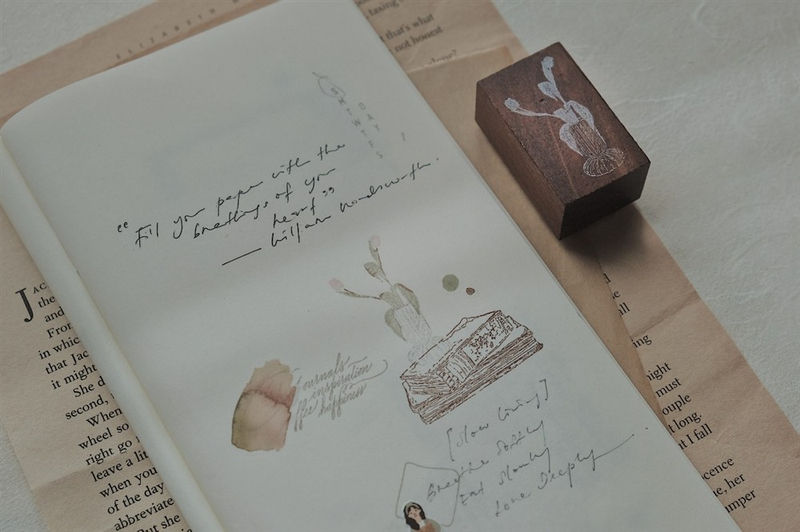 ELIZABETH
that's what
not hoorat
“Fill your paper with the
breathings of your
heart”
— William Wordsworth.
journals
inspiration
coffee
happiness
[Slow living]
Breathe Softly
Eat Slowly
Love Deeply
JAC
the
and
From
in which
that Jac
it might
She d
second,
When
wheel so
right go
leave a lit
when you
of the day
abbreviate
But she
night
must
couple
t long.
I fall
cence
e, her
umper